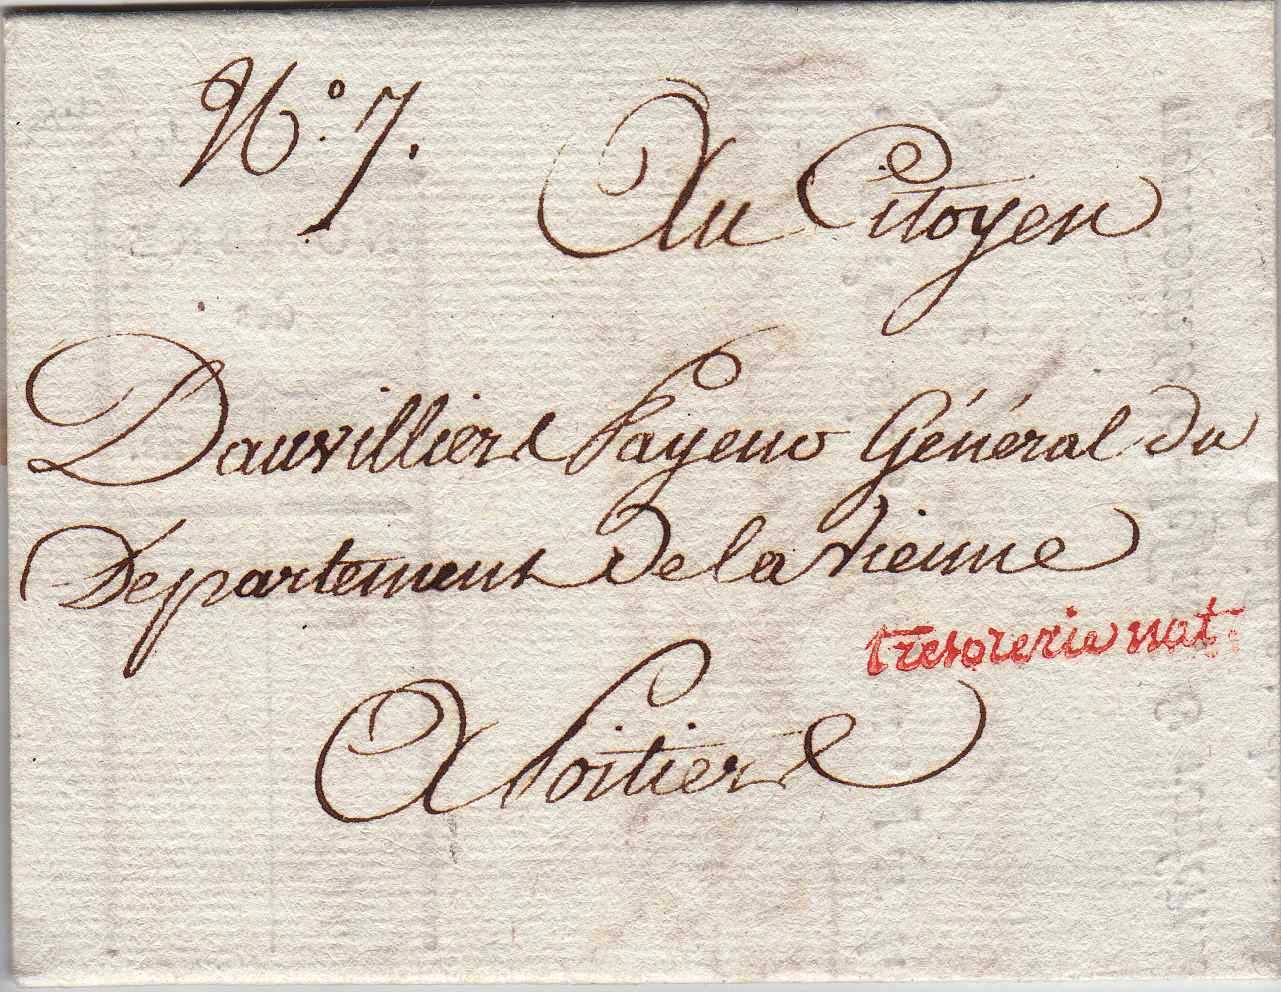 N.º 7.
Au Citoyen
Dauvilliers Payeur Général du
Département de la Vienne
tresorerie nat.
A Poitiers